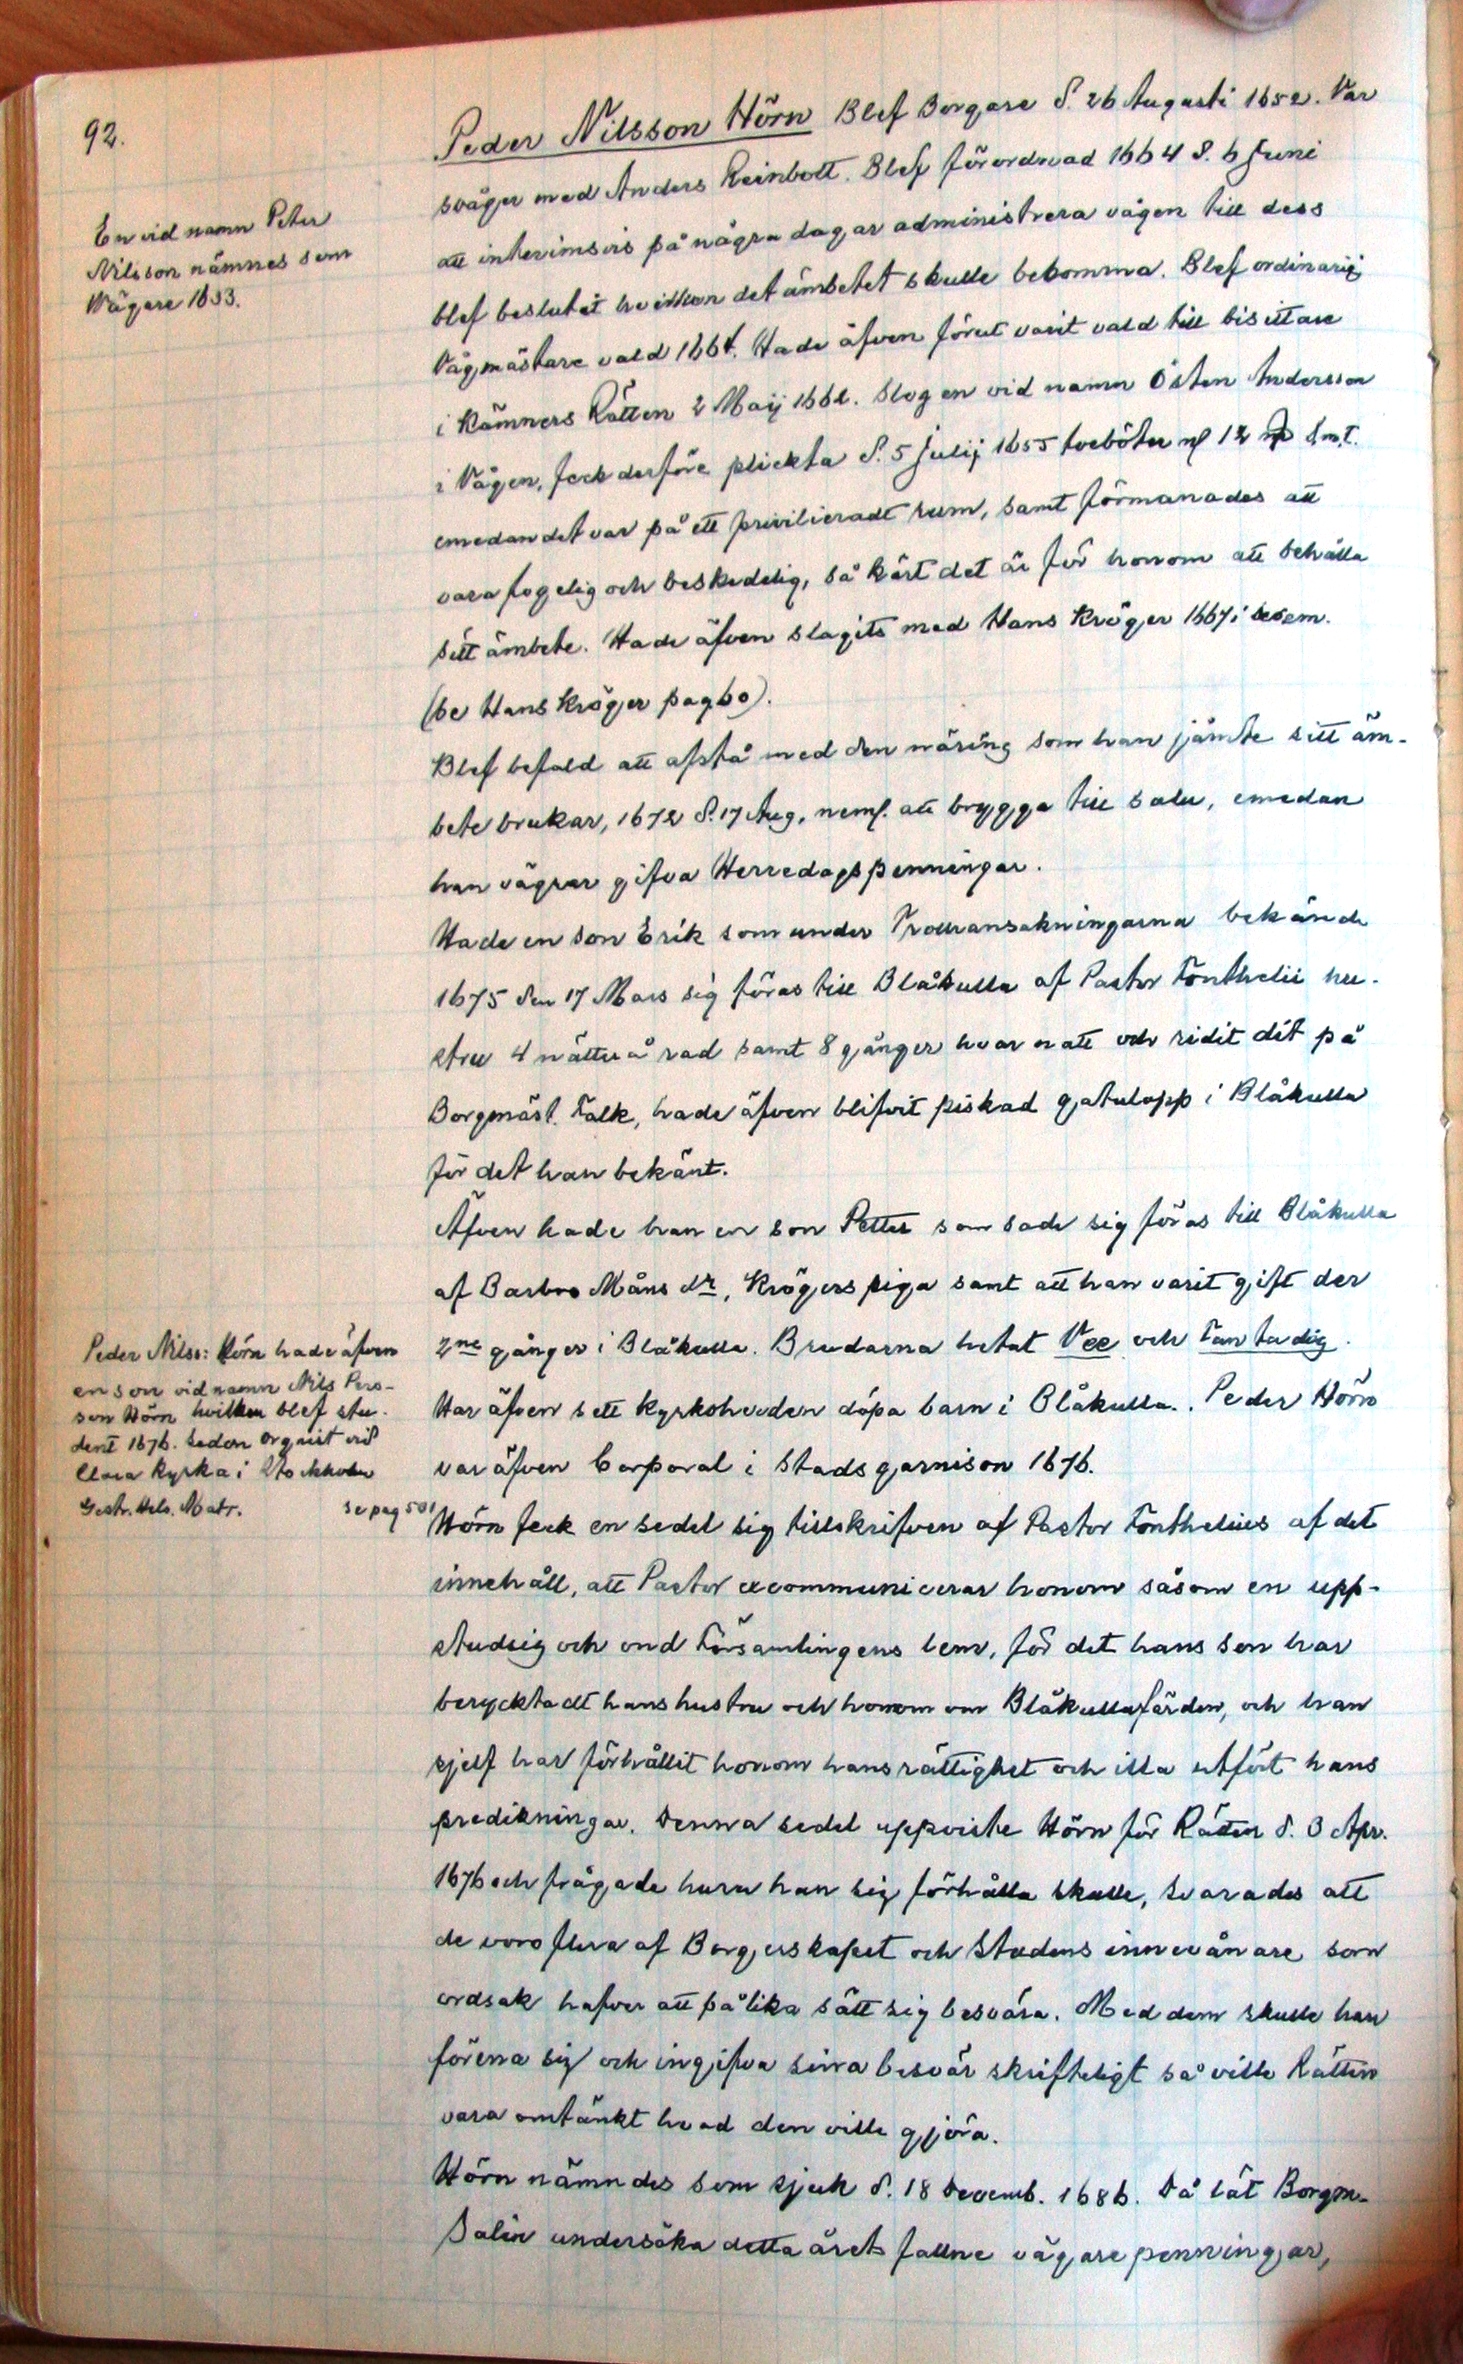 92.
En vid namn Peter
Nilsson nämnes som
Vägare 1653.
Peder Nilsson Hörn Blef Borgare d. 26 Augusti 1652. Var
svåger med Anders Reinbott. Blef förordnad 1664 d. 6 Juni
att interimsvis på några dagar administrera vågen till dess
blef beslutit hvilken det ämbetet skulle bekomma. Blef ordinarij
Vågmästare vald 1664. Hade äfven förut varit vald till bisittare
i Kämners Rätten 2 Maij 1662. Slog en vid namn Östen Andersson
i Vågen, feck derföre plickta d. 5 Julij 1655 tveböter 12 Smt.
emedan det var på ett privilieradt rum, samt förmanades att
vara fogelig och beskedelig, så kärt det är för honom att behålla
sitt ämbete. Hade äfven slagits med Hans Kröger 1667 i decem.
(se Hans Kröger pag 60).
Blef befald att afstå med den näring som han jämte sitt äm-
bete brukar, 1672 d. 17 Aug, neml. att brygga till salu, emedan
han vägrar gifva Herredagspenningar.
Hade en son Erik som under Trollransakningarna bekände
1675 den 17 Mars sig föras till Blåkulla af Pastor Fonthelii hu-
stru 4 nätter å rad samt 8 gånger hvar natt och ridit dit på
Borgmäst. Falk, hade äfven blifvit piskad gatulopp i Blåkulla
för det han bekänt.
Äfven hade han en son Petter som sade sig föras till Blåkulla
af Barbro Måns dr, Krögers piga samt att han varit gift der
2ne gånger i Blåkulla. Brudarna hetat Vee och Fantadig.
Har äfven sett kyrkoherden döpa barn i Blåkulla. Peder Hörn
var äfven Corporal i Stadsgarnison 1676.
Peder Nilss: Hörn hade äfven
en son vid namn Nils Pers-
son Hörn hvilken blef stu-
dent 1676. Sedan orgnist vid
Clara Kyrka i Stockholm
Gestr. Hels. Matr. se pag 501
Hörn feck en sedel sig tillskrifven af Pastor Fonthelius af det
innehåll, att Pastor excommunicerar honom såsom en upp-
studsig och ond Församlingens lem, för det hans son har
beryktadt hans hustru och honom om Blåkullafärden, och han
sjelf har förhållit honom hans rättighet och illa utfört hans
predikningar. Denna sedel uppviste Hörn för Rätten d. 3 Apr.
1676 och frågade huru han sig förhålla skulle, svarades att
de voro flera af Borgerskapet och Stadens innevånare som
ordsak hafver att på lika sätt sig besvära. Med dem skulle han
förena sig och ingifva sina besvär skrifteligt så ville Rätten
vara omtänkt hvad den ville gjöra.
Hörn nämndes som sjuk d. 18 Decemb. 1686. Då lät Borgm.
Salin undersöka detta årets fallne vägarepenningar,